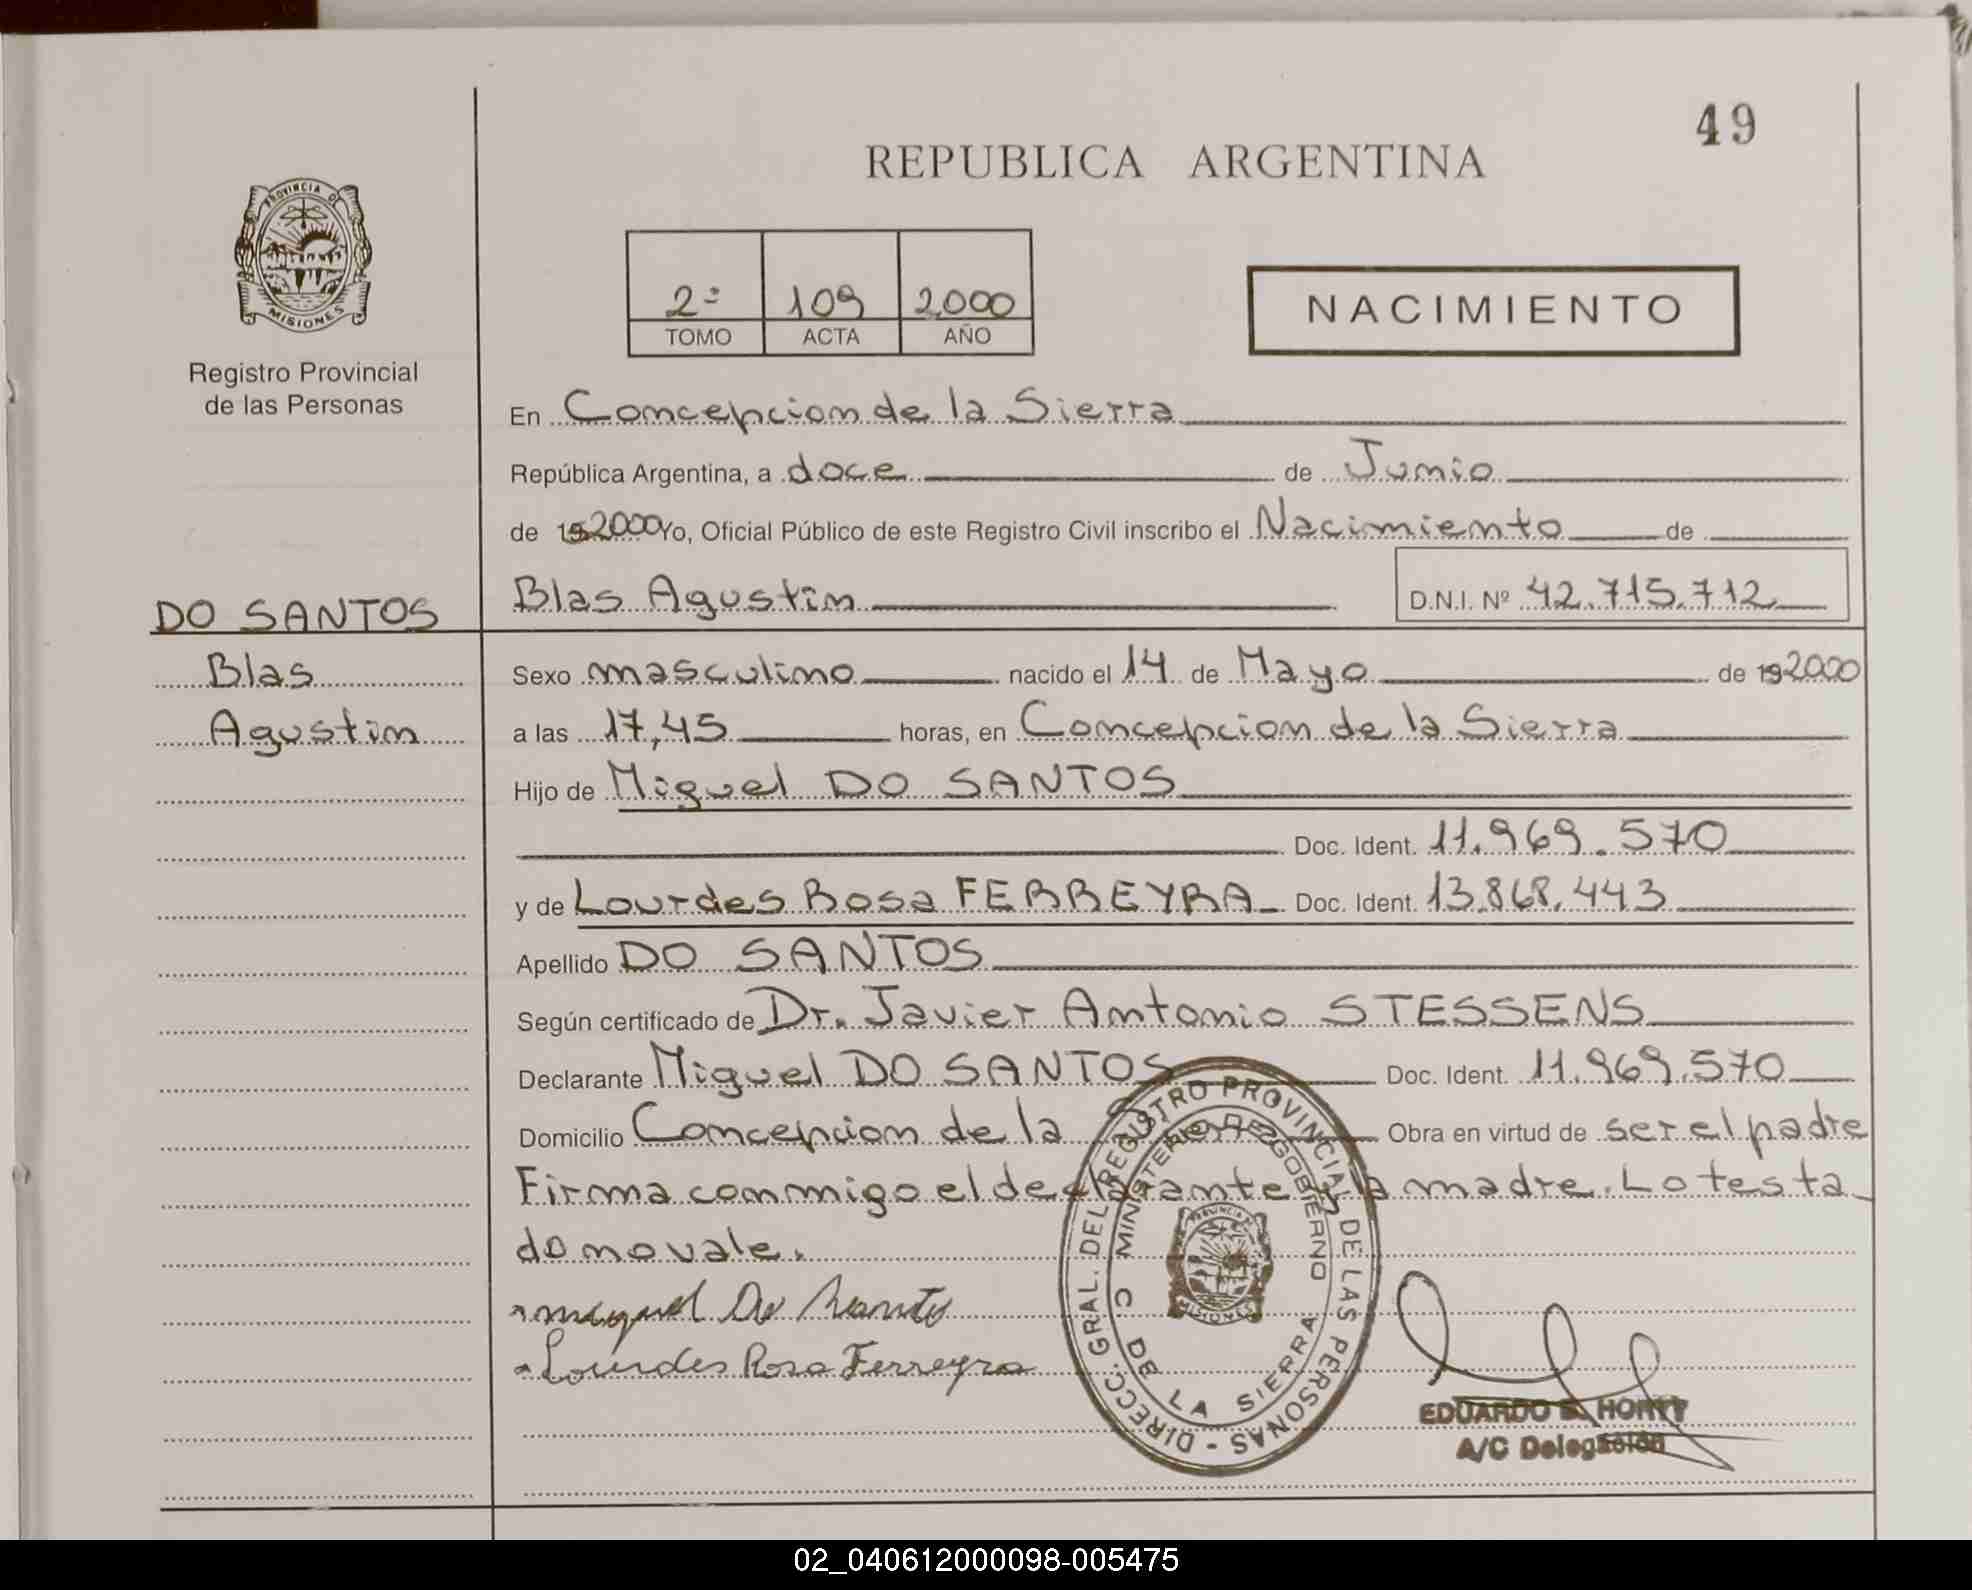 49
REPUBLICA ARGENTINA
PROVINCIA DE
MISIONES
Registro Provincial
de las Personas
2º 109 2.000
TOMO ACTA AÑO
NACIMIENTO
En Concepcion de la Sierra
República Argentina, a doce de Junio
de 192000 Yo, Oficial Público de este Registro Civil inscribo el Nacimiento de
DO SANTOS Blas Agustin D.N.I. Nº 42.715.712
Blas Sexo masculino nacido el 14 de Mayo de 192000
Agustin a las 17,45 horas, en Concepcion de la Sierra
Hijo de Miguel DO SANTOS
Doc. Ident. 11.969.570
y de Lourdes Rosa FERREYRA Doc. Ident. 13.868.443
Apellido DO SANTOS
Según certificado de Dr. Javier Antonio STESSENS
Declarante Miguel DO SANTOS Doc. Ident. 11.969.570
Domicilio Concepcion de la Obra en virtud de ser el padre
Firma conmigo el declarante y la madre. Lo testa
do no vale.
Miguel Do Santos
Lourdes Rosa Ferreyra
DIRECC. GRAL. DEL REGISTRO PROVINCIAL DE LAS PERSONAS -
MINISTERIO DE GOBIERNO
C DE LA SIERRA
PROVINCIA DE
MISIONES
EDUARDO
A/C Delegación
02_040612000098-005475